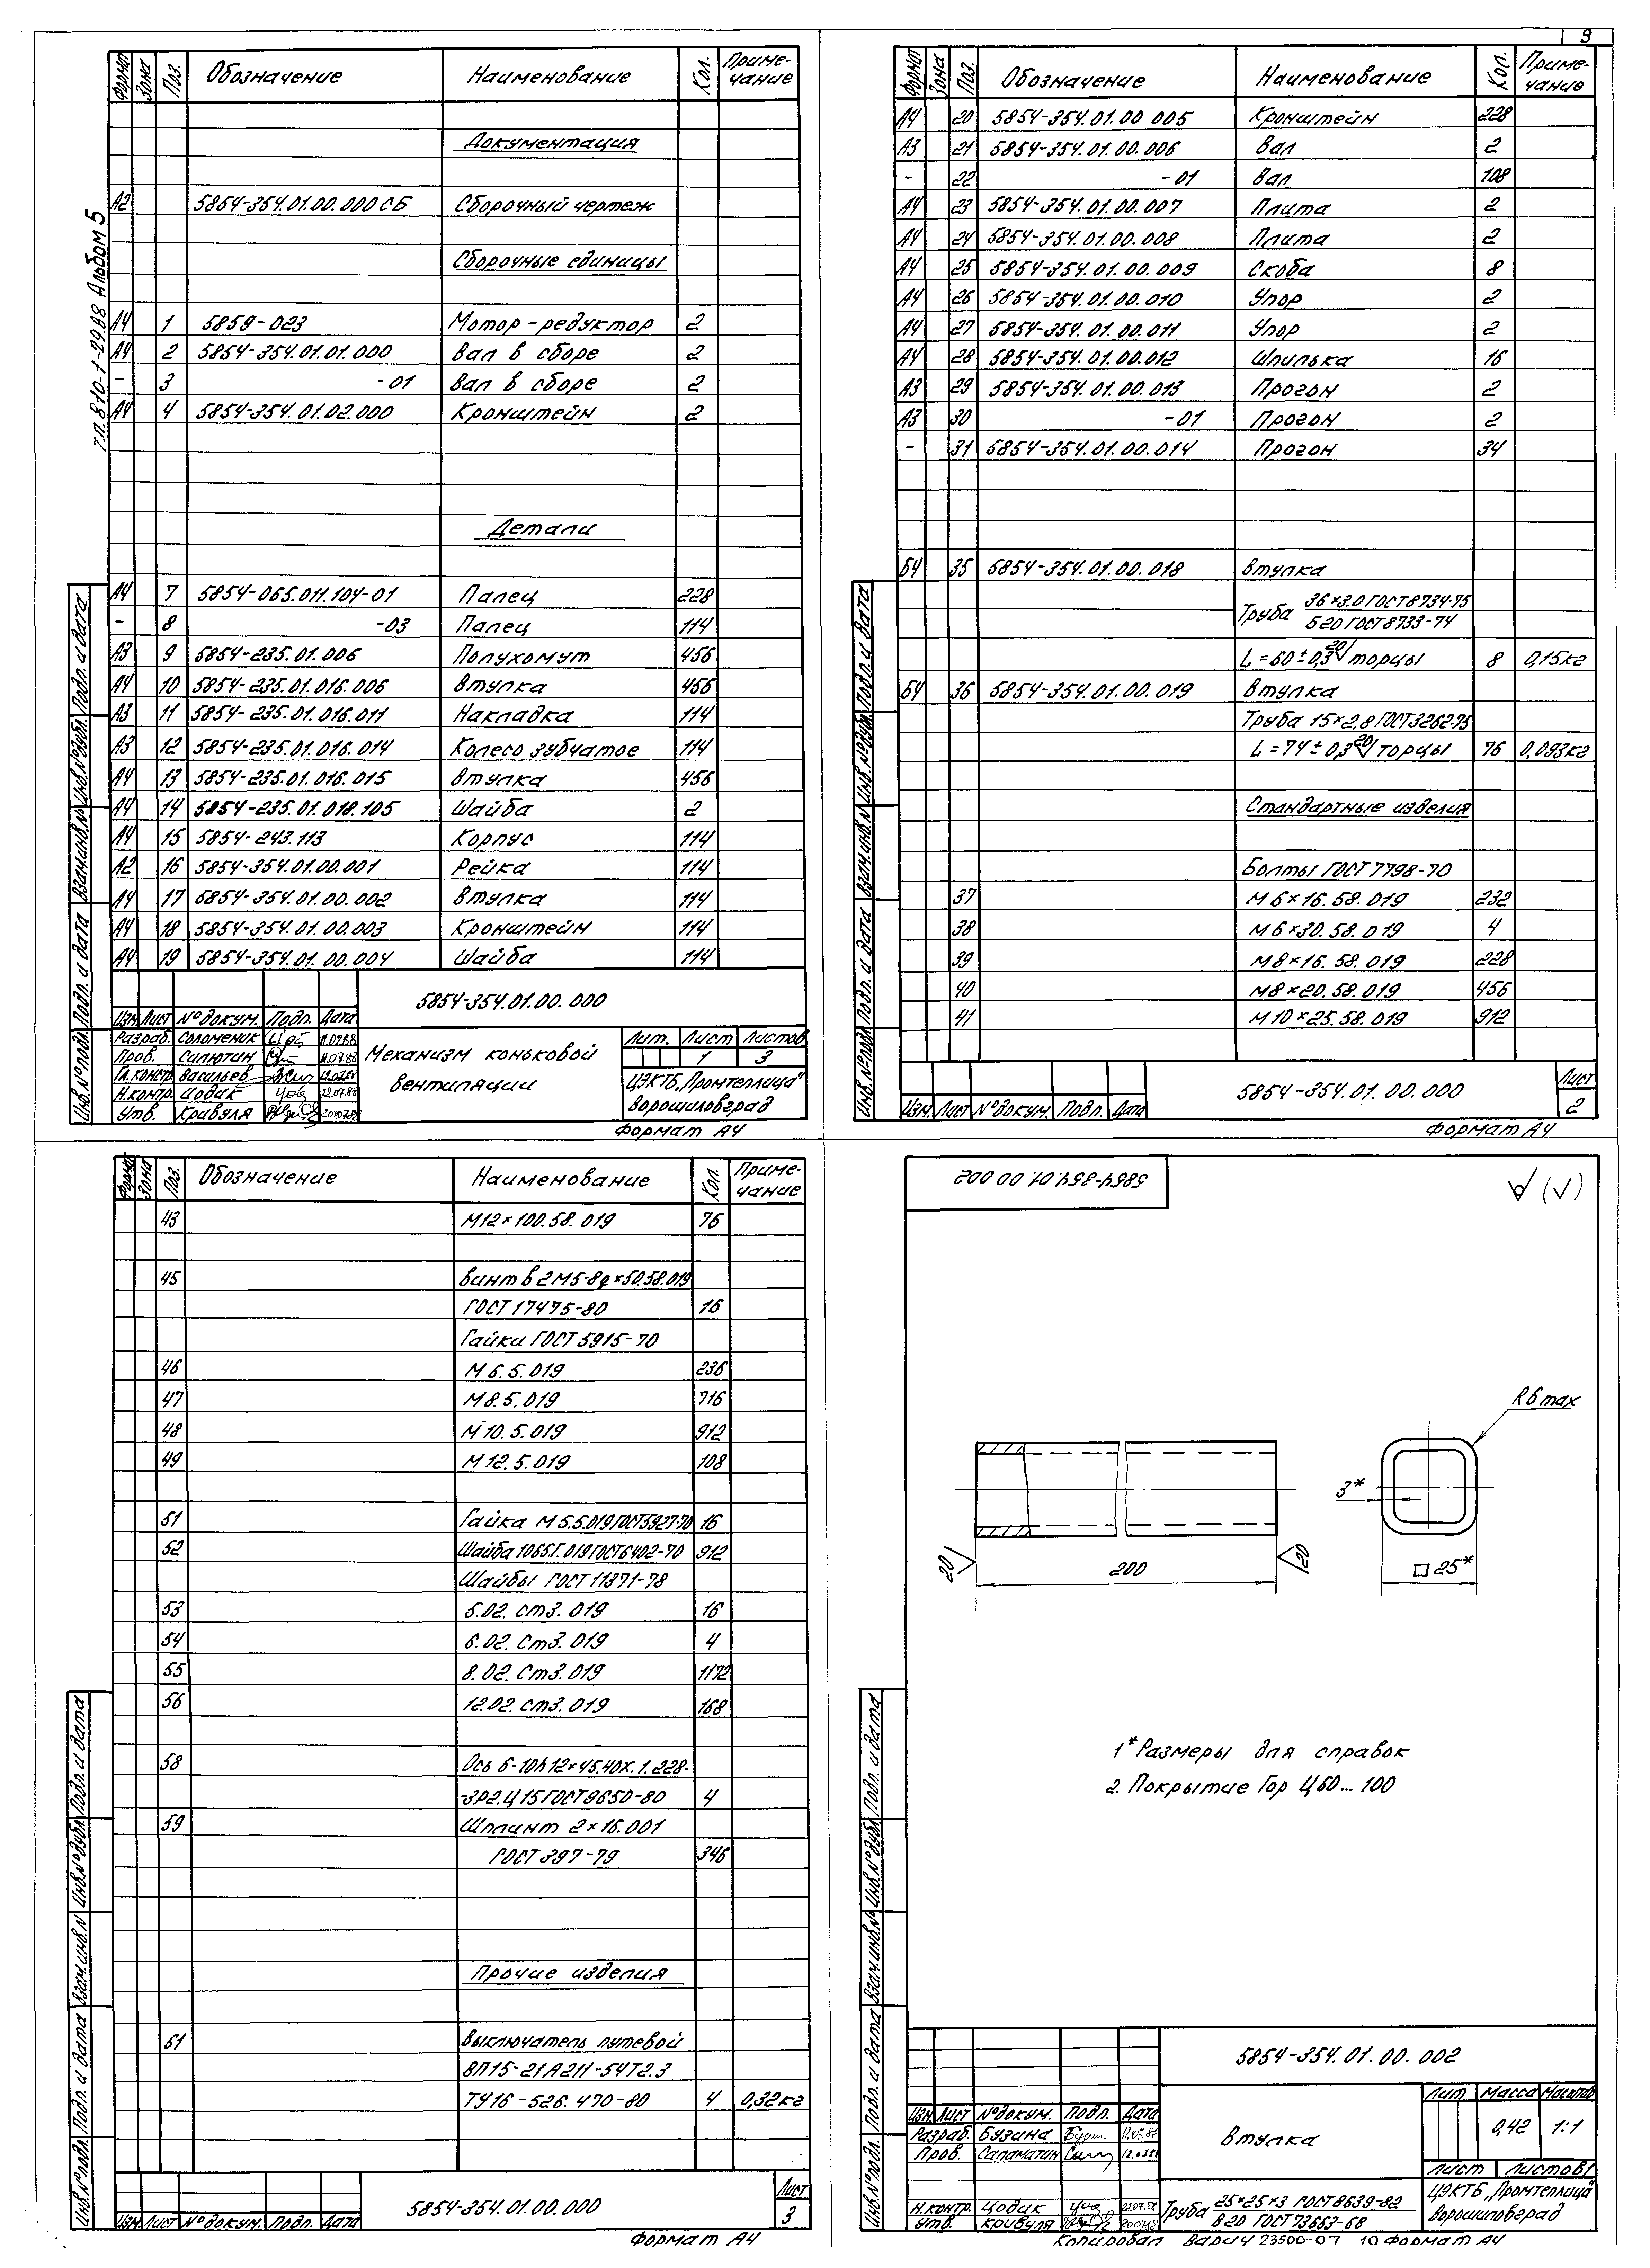 9
Т.П. 810-1-29.88 Альбом 5
Формат Зона Поз. Обозначение Наименование Кол. Приме-
чание
Документация
А2 5854-354.01.00.000 СБ Сборочный чертеж
Сборочные единицы
А4 1 5859-023 Мотор-редуктор 2
А4 2 5854-354.01.01.000 Вал в сборе 2
- 3 -01 Вал в сборе 2
А4 4 5854-354.01.02.000 Кронштейн 2
Детали
А4 7 5854-065.011.104-01 Палец 228
- 8 -03 Палец 114
А3 9 5854-235.01.006 Полухомут 456
А4 10 5854-235.01.016.006 Втулка 456
А3 11 5854-235.01.016.011 Накладка 114
А3 12 5854-235.01.016.014 Колесо зубчатое 114
А4 13 5854-235.01.016.015 Втулка 456
А4 14 5854-235.01.018.105 Шайба 2
А4 15 5854-243.113 Корпус 114
А2 16 5854-354.01.00.001 Рейка 114
А4 17 5854-354.01.00.002 Втулка 114
А4 18 5854-354.01.00.003 Кронштейн 114
А4 19 5854-354.01.00.004 Шайба 114
5854-354.01.00.000
Изм. Лист № докум. Подп. Дата
Разраб. Соломеник
Пров. Силютин
Гл. констр. Васильев
Н.контр. Цодик
Утв. Кривуля
Механизм коньковой
вентиляции
Лит. Лист Листов
1 3
ЦЭКТБ „Промтеплица"
Ворошиловград
Формат А4
Инв. № подл. Подп. и дата Взам. инв. № Инв. № дубл. Подп. и дата
Формат Зона Поз. Обозначение Наименование Кол. Приме-
чание
А4 20 5854-354.01.00 005 Кронштейн 228
А3 21 5854-354.01.00.006 Вал 2
- 22 -01 Вал 108
А4 23 5854-354.01.00.007 Плита 2
А4 24 5854-354.01.00.008 Плита 2
А4 25 5854-354.01.00.009 Скоба 8
А4 26 5854-354.01.00.010 Упор 2
А4 27 5854-354.01.00.011 Упор 2
А4 28 5854-354.01.00.012 Шпилька 16
А3 29 5854-354.01.00.013 Прогон 2
А3 30 -01 Прогон 2
- 31 5854-354.01.00.014 Прогон 34
БЧ 35 5854-354.01.00.018 Втулка
Труба 36×3.0 ГОСТ 8734-75
Б20 ГОСТ 8733-74
L=60±0,3 20 торцы 8 0,15кг
БЧ 36 5854-354.01.00.019 Втулка
Труба 15×2,8 ГОСТ 3262-75
L=74±0,3 20 торцы 76 0,093кг
Стандартные изделия
Болты ГОСТ 7798-70
37 М6×16.58.019 232
38 М6×30.58.019 4
39 М8×16.58.019 228
40 М8×20.58.019 456
41 М10×25.58.019 912
5854-354.01.00.000
Лист
2
Изм. Лист № докум. Подп. Дата
Формат А4
Инв. № подл. Подп. и дата Взам. инв. № Инв. № дубл. Подп. и дата
Формат Зона Поз. Обозначение Наименование Кол. Приме-
чание
43 М12×100.58.019 76
45 Винт В2М5-8g×50.58.019
ГОСТ 17475-80 16
Гайки ГОСТ 5915-70
46 М6.5.019 236
47 М8.5.019 716
48 М10.5.019 912
49 М12.5.019 108
51 Гайка М5.5.019 ГОСТ 5927-70 16
52 Шайба 10 65Г.019 ГОСТ 6402-70 912
Шайбы ГОСТ 11371-78
53 5.02.Ст3.019 16
54 6.02.Ст3.019 4
55 8.02.Ст3.019 1172
56 12.02.Ст3.019 168
58 Ось 6-10h12×45.40Х.1.228-
-ЗР2.Ц15 ГОСТ 9650-80 4
59 Шплинт 2×16.001
ГОСТ 397-79 346
Прочие изделия
61 Выключатель путевой
ВП15-21А211-54Т2.3
ТУ16-526.470-80 4 0,32кг
5854-354.01.00.000
Лист
3
Изм. Лист № докум. Подп. Дата
Формат А4
Инв. № подл. Подп. и дата Взам. инв. № Инв. № дубл. Подп. и дата
5854-354.01.00 002
√ (√)
R6 max
3*
20
200
20
□25*
1* Размеры для справок
2. Покрытие Гор Ц60...100
5854-354.01.00.002
Изм. Лист № докум. Подп. Дата
Разраб. Бузина
Пров. Саламатин
Н.контр. Цодик
Утв. Кривуля
Втулка
Лит Масса Масштаб
0,42 1:1
Лист Листов 1
Труба 25×25×3 ГОСТ 8639-82
В20 ГОСТ 73663-68
ЦЭКТБ „Промтеплица"
Ворошиловград
Копировал Варич 23500-07 10 Формат А4
Инв. № подл. Подп. и дата Взам. инв. № Инв. № дубл. Подп. и дата